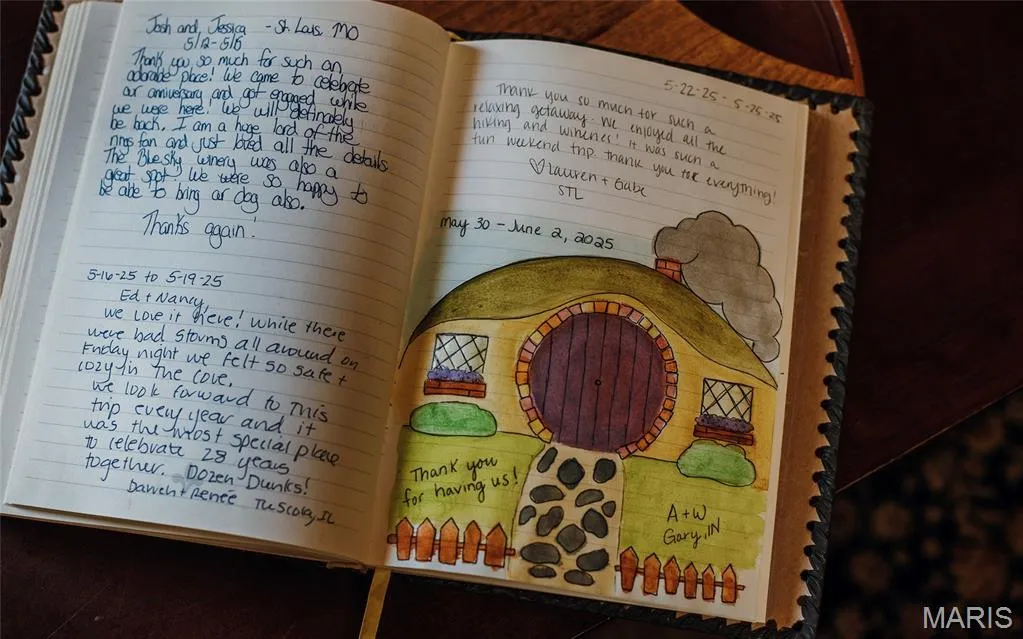 Josh and Jessica - St. Louis, MO
5/12-5/15
Thank you so much for such an
adorable place! We came to celebrate
our anniversary and got engaged while
we were here! We will definately
be back. I am a huge lord of the
rings fan and just loved all the details
The Bluesky winery was also a
great spot! We were so happy to
be able to bring our dog also.
Thanks again!
5-16-25 to 5-19-25
Ed + Nancy,
we Love it here! while there
were bad storms all around on
Friday night we felt so safe +
cozy in the cove.
we look forward to this
trip every year and it
was the most special place
to celebrate 28 years
together. Dozen Dunks!
Darren + Renée Tuscola, IL
5-22-25 - 5-25-25
Thank you so much for such a
relaxing getaway. We enjoyed all the
hiking and wineries! It was such a
fun weekend trip. Thank you for everything!
♡ Lauren + Gabe
STL
may 30 - June 2, 2025
Thank you
for having us!
A + W
Gary, IN
MARIS